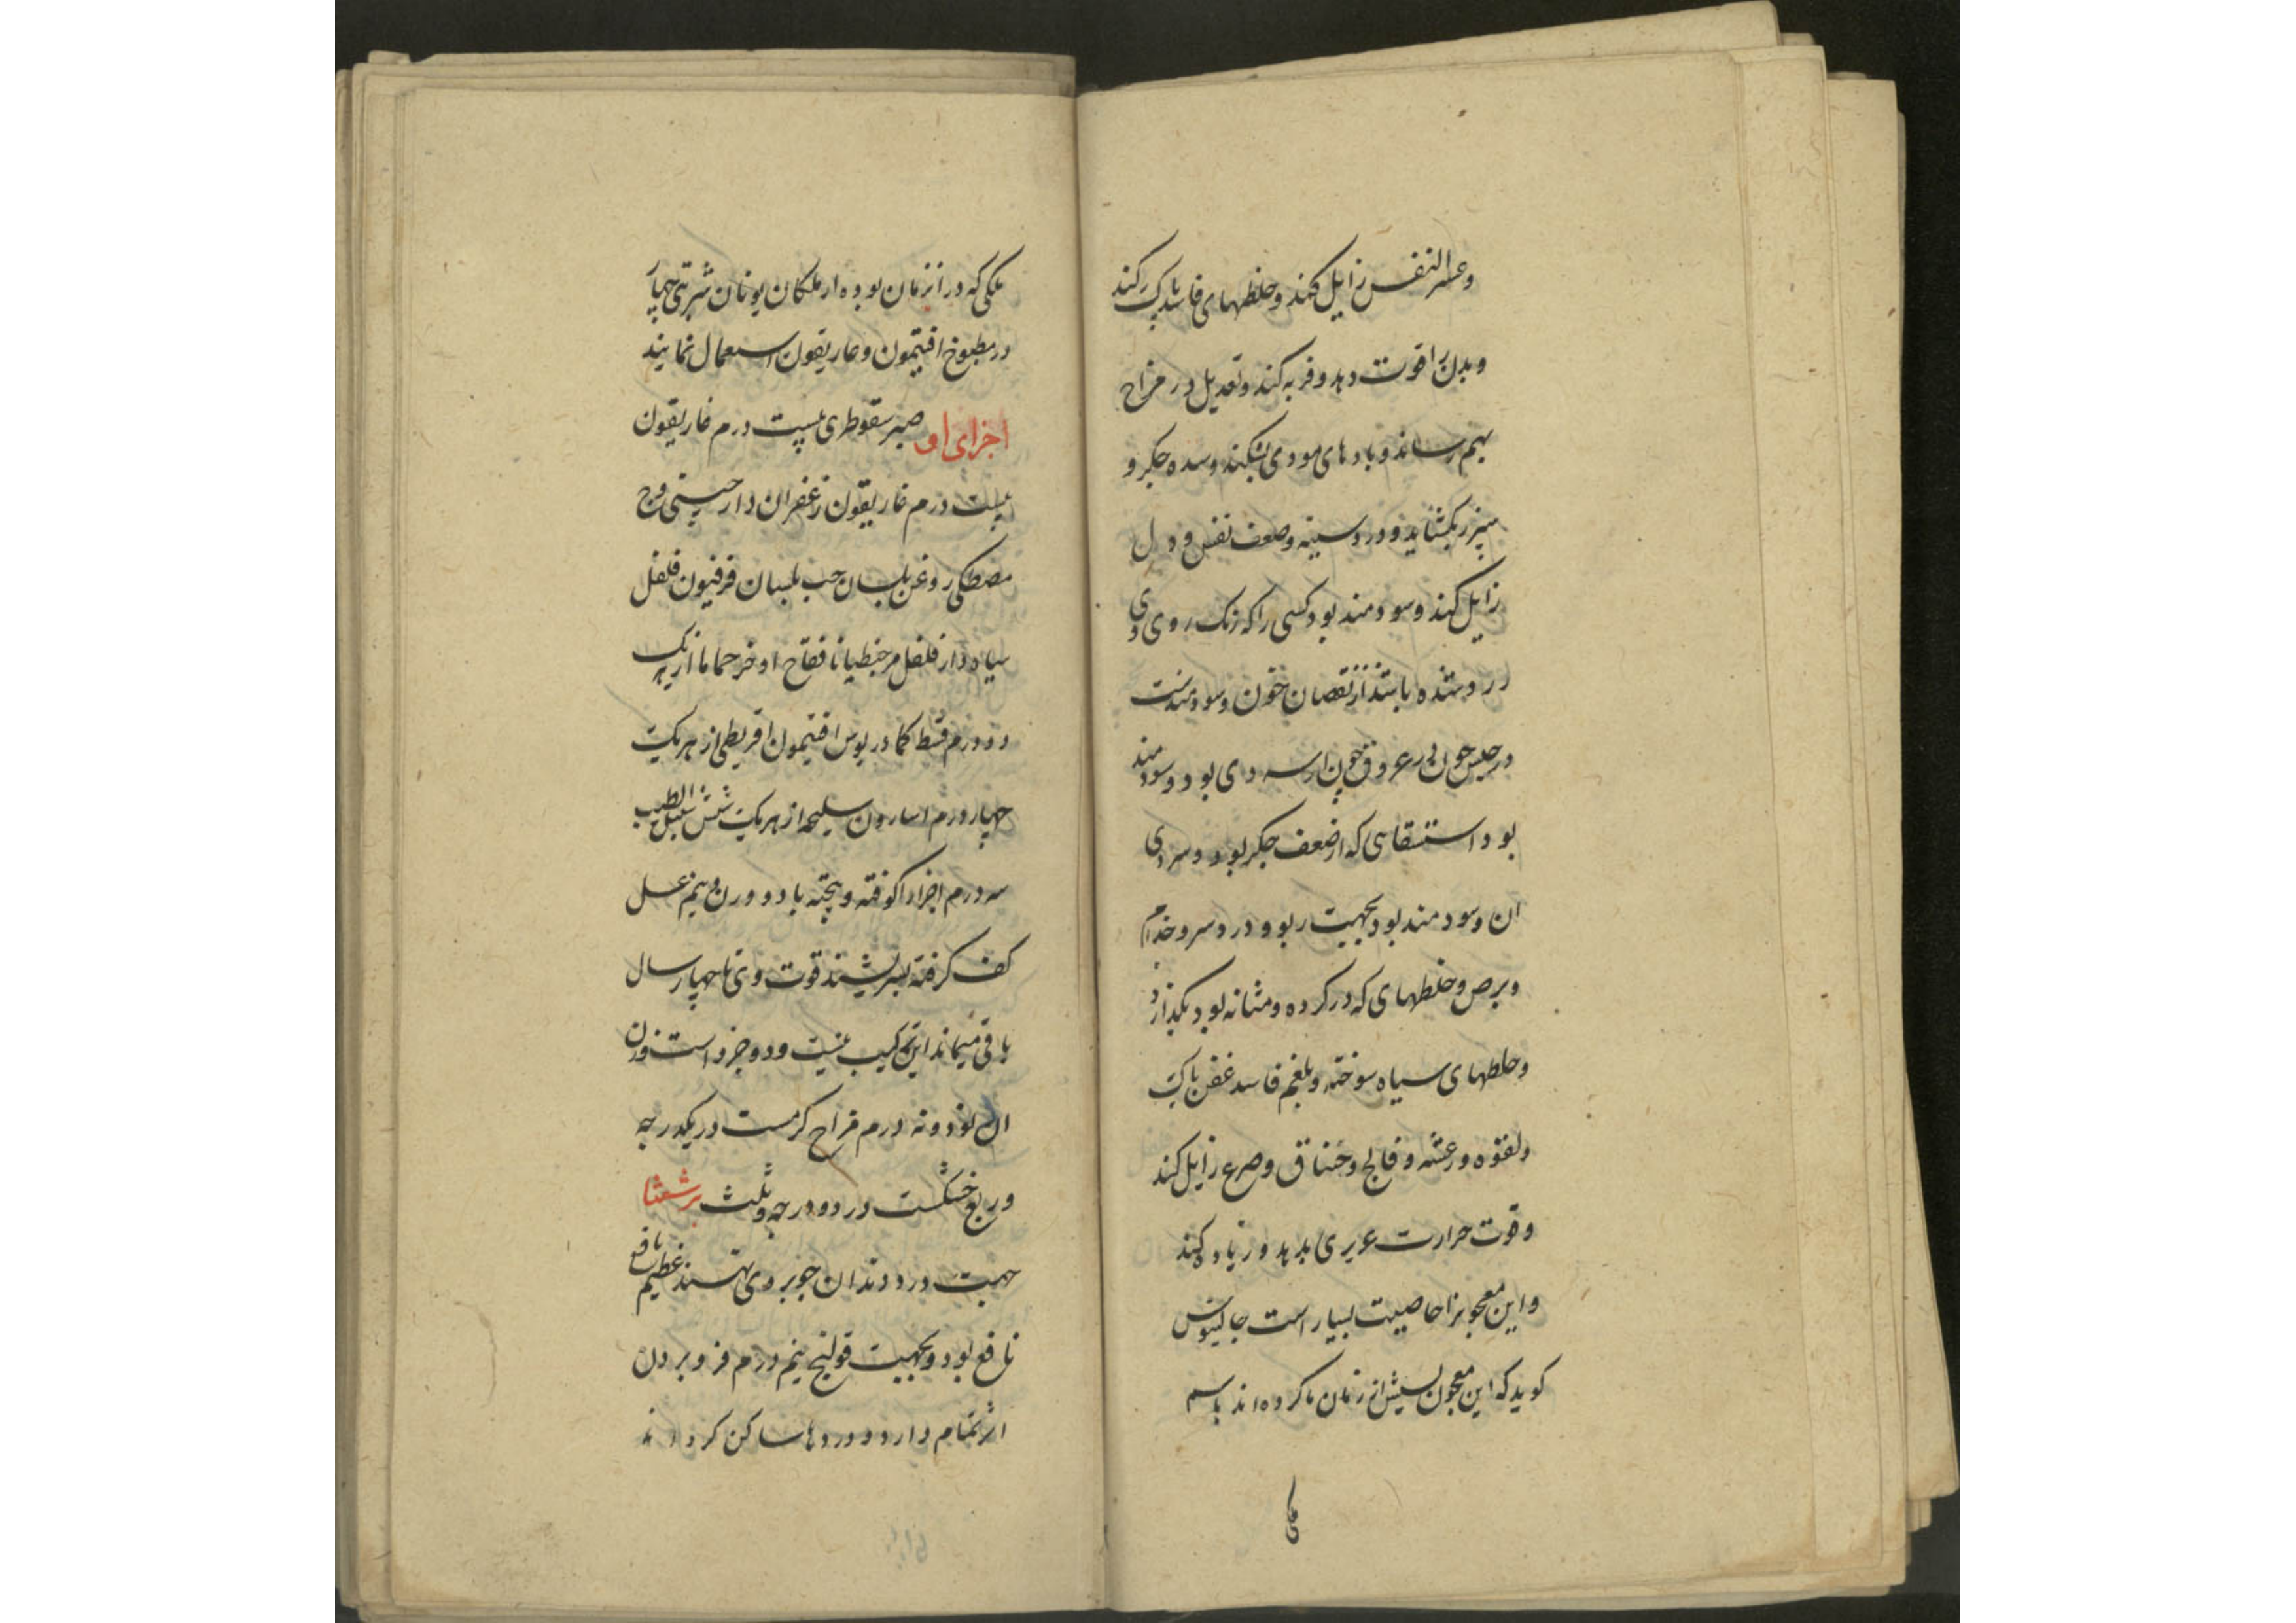 وعسر النفس زایل کند و خلطهای فاسد پاک کند
و بدن را قوت دهد و فربه کند و تعدیل در مزاج
بهم رساند و بادهای موذی بشکند و سده جکر و
سپرز بکشاید و درد سینه و ضعف نفس و دل
زایل کند و سودمند بود کسی را که رنک روی وی
زرد شده باشد از نقصان خون و سودمندست
در حبس خون
بود استسقای که از ضعف جکر بود و سردی
ان و سودمند بود بجهت ربو و درد سر و جذام
و برص و خلطهای که در کرده و مثانه بود بکدازد
و خلطهای سیاه سوخته و بلغم فاسد عفن پاک
و لقوه و رعشه و فالج و خناق و صرع زایل کند
و قوت حرارت غریزی بدهد و زیاده کند
و این معجونرا خاصیت بسیار است جالینوس
کوید که این معجون پیش از زمان ما کرده اند باسم
ملکی
ملکی که در انزمان بوده از ملکان یونان شربتی چهار
در مطبوخ افتیمون و غاریقون استعمال نمایند
اجزای او صبر سقوطری بیست درم غاریقون
بیست درم غاریقون زعفران دارچینی وج
مصطکی روغن بلسان حب بلسان فرفیون فلفل
سیاه دار فلفل مر جنطیانا فقاح اذخر حماما از هریک
دو درم قسط کمادریوس افتیمون اقریطی از هریک
چهار درم اسارون سلیخه از هریک شش سنبل الطیب
سه درم اجزا را کوفته و پخته با دو وزن و نیم عسل
کف کرفته بسرشند قوت وی تا چهار سال
باقی میماند این ترکیب بیست و دو جزو است وزن
ان نود و نه درم مزاج کرمست در یکدرجه
و ربع خشکست در دو درجه و ثلث برشعثا
جهت درد دندان چو بر وی نهند عظیم نافع
نافع بود و بجهت قولنج نیم درم فرو بردن
اثر تمام دارد و دردها ساکن کرداند